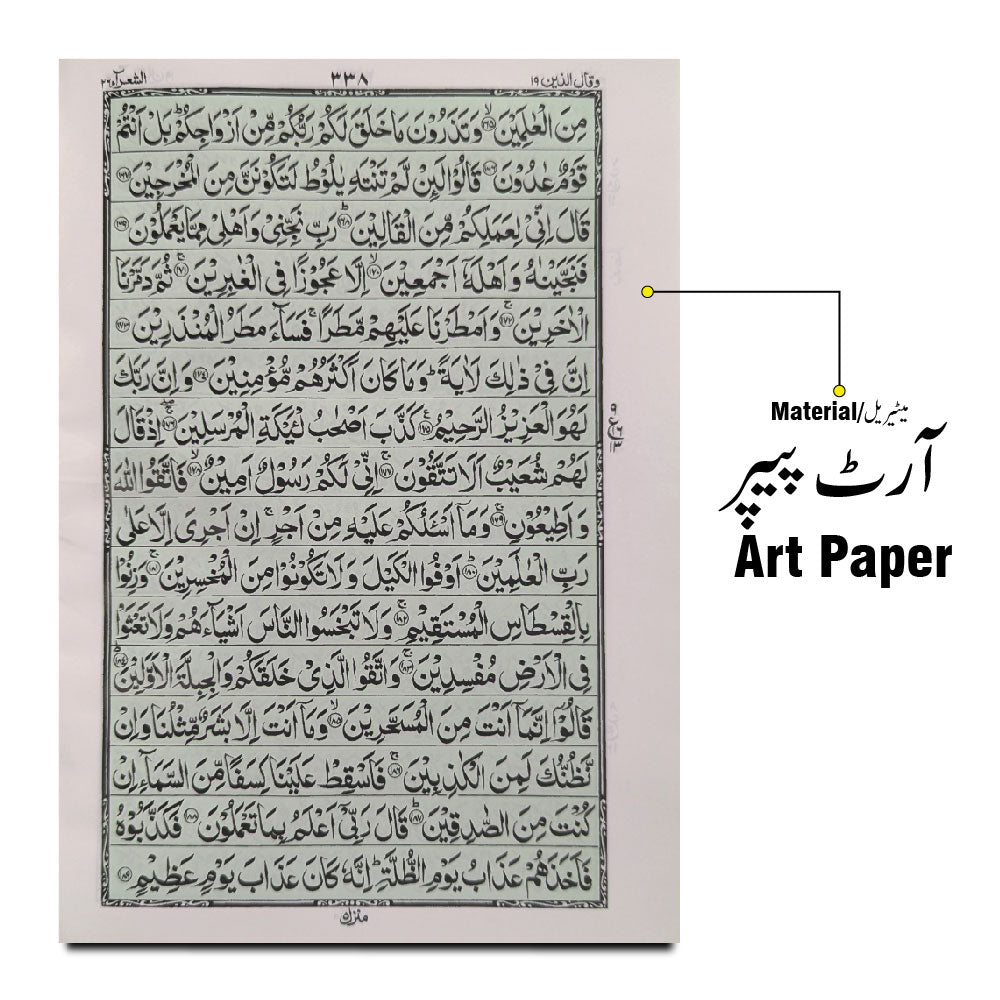 وقال الذین ۱۹ ۳۳۸ الشعرآء ۲۶
مِنَ الْعٰلَمِيْنَ ۙ﴿۱۶۵﴾ وَتَذَرُوْنَ مَا خَلَقَ لَكُمْ رَبُّكُمْ مِّنْ اَزْوَاجِكُمْ ؕ بَلْ اَنْتُمْ
قَوْمٌ عٰدُوْنَ ﴿۱۶۶﴾ قَالُوْا لَئِنْ لَّمْ تَنْتَهِ يٰلُوْطُ لَتَكُوْنَنَّ مِنَ الْمُخْرَجِيْنَ ﴿۱۶۷﴾
قَالَ اِنِّيْ لِعَمَلِكُمْ مِّنَ الْقَالِيْنَ ؕ﴿۱۶۸﴾ رَبِّ نَجِّنِيْ وَاَهْلِيْ مِمَّا يَعْمَلُوْنَ ﴿۱۶۹﴾
فَنَجَّيْنٰهُ وَاَهْلَهٗۤ اَجْمَعِيْنَ ۙ﴿۱۷۰﴾ اِلَّا عَجُوْزًا فِي الْغٰبِرِيْنَ ۚ﴿۱۷۱﴾ ثُمَّ دَمَّرْنَا
الْاٰخَرِيْنَ ۚ﴿۱۷۲﴾ وَاَمْطَرْنَا عَلَيْهِمْ مَّطَرًا ۚ فَسَآءَ مَطَرُ الْمُنْذَرِيْنَ ﴿۱۷۳﴾
اِنَّ فِيْ ذٰلِكَ لَاٰيَةً ؕ وَمَا كَانَ اَكْثَرُهُمْ مُّؤْمِنِيْنَ ﴿۱۷۴﴾ وَاِنَّ رَبَّكَ
لَهُوَ الْعَزِيْزُ الرَّحِيْمُ ﴿۱۷۵﴾ كَذَّبَ اَصْحٰبُ لْئَيْكَةِ الْمُرْسَلِيْنَ ۚۖ﴿۱۷۶﴾ اِذْ قَالَ
لَهُمْ شُعَيْبٌ اَلَا تَتَّقُوْنَ ۚ﴿۱۷۷﴾ اِنِّيْ لَكُمْ رَسُوْلٌ اَمِيْنٌ ۙ﴿۱۷۸﴾ فَاتَّقُوا اللّٰهَ
وَاَطِيْعُوْنِ ۚ﴿۱۷۹﴾ وَمَاۤ اَسْئَلُكُمْ عَلَيْهِ مِنْ اَجْرٍ ۚ اِنْ اَجْرِيَ اِلَّا عَلٰى
رَبِّ الْعٰلَمِيْنَ ؕ﴿۱۸۰﴾ اَوْفُوا الْكَيْلَ وَلَا تَكُوْنُوْا مِنَ الْمُخْسِرِيْنَ ۚ﴿۱۸۱﴾ وَزِنُوْا
بِالْقِسْطَاسِ الْمُسْتَقِيْمِ ۚ﴿۱۸۲﴾ وَلَا تَبْخَسُوا النَّاسَ اَشْيَآءَهُمْ وَلَا تَعْثَوْا
فِي الْاَرْضِ مُفْسِدِيْنَ ۚ﴿۱۸۳﴾ وَاتَّقُوا الَّذِيْ خَلَقَكُمْ وَالْجِبِلَّةَ الْاَوَّلِيْنَ ؕ﴿۱۸۴﴾
قَالُوْۤا اِنَّمَاۤ اَنْتَ مِنَ الْمُسَحَّرِيْنَ ۙ﴿۱۸۵﴾ وَمَاۤ اَنْتَ اِلَّا بَشَرٌ مِّثْلُنَا وَاِنْ
نَّظُنُّكَ لَمِنَ الْكٰذِبِيْنَ ۚ﴿۱۸۶﴾ فَاَسْقِطْ عَلَيْنَا كِسَفًا مِّنَ السَّمَآءِ اِنْ
كُنْتَ مِنَ الصّٰدِقِيْنَ ؕ﴿۱۸۷﴾ قَالَ رَبِّيْۤ اَعْلَمُ بِمَا تَعْمَلُوْنَ ﴿۱۸۸﴾ فَكَذَّبُوْهُ
فَاَخَذَهُمْ عَذَابُ يَوْمِ الظُّلَّةِ ؕ اِنَّهٗ كَانَ عَذَابَ يَوْمٍ عَظِيْمٍ ﴿۱۸۹﴾
منزل
Material/میٹیریل
آرٹ پیپر
Art Paper